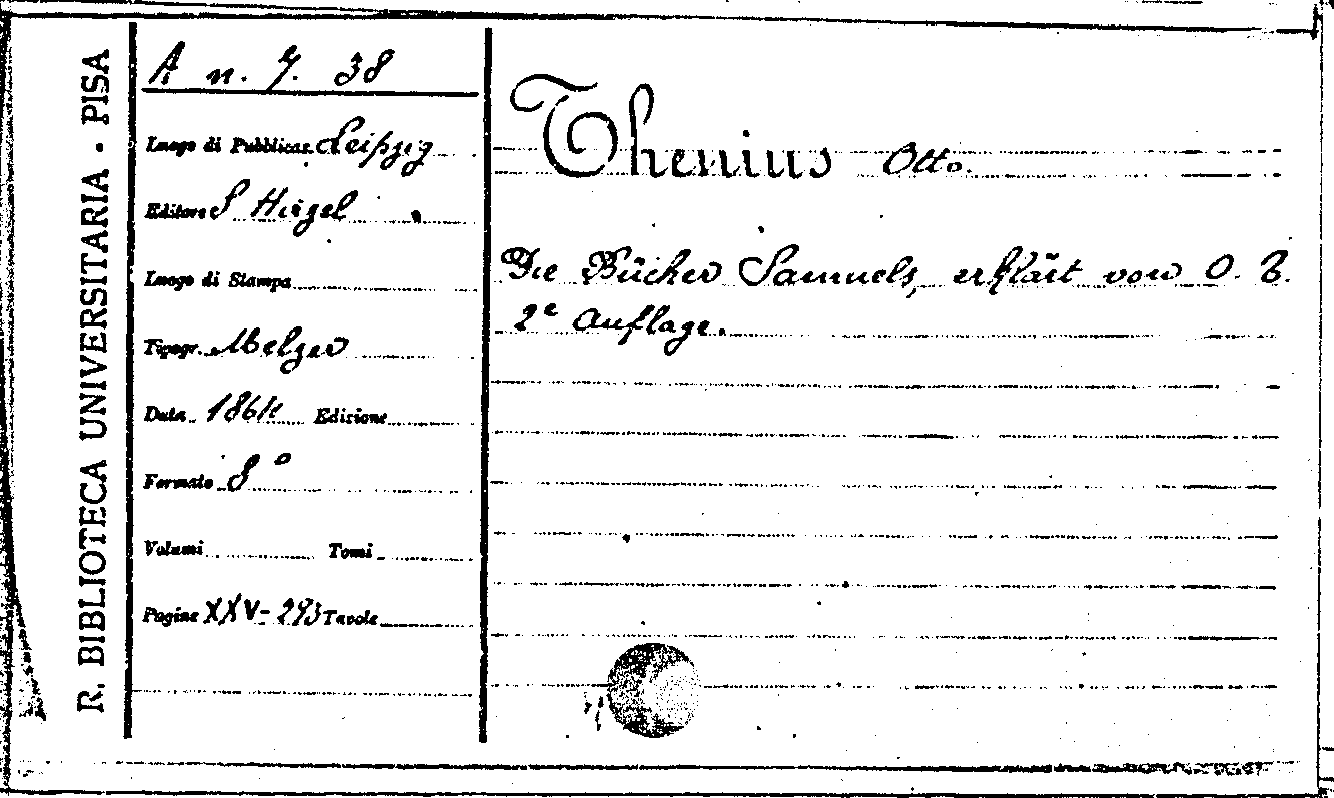 R. BIBLIOTECA UNIVERSITARIA · PISA
A n. 7. 38
Luogo di Pubblicaz. Leipzig
Editore S Hirzel
Luogo di Stampa
Tipogr. Melzer
Data 1864 Edizione
Formato 8°
Volumi Tomi
Pagine XXV-293 Tavole
Thenius Otto.
Die Bücher Samuels, erklärt von O. T.
2e Auflage.